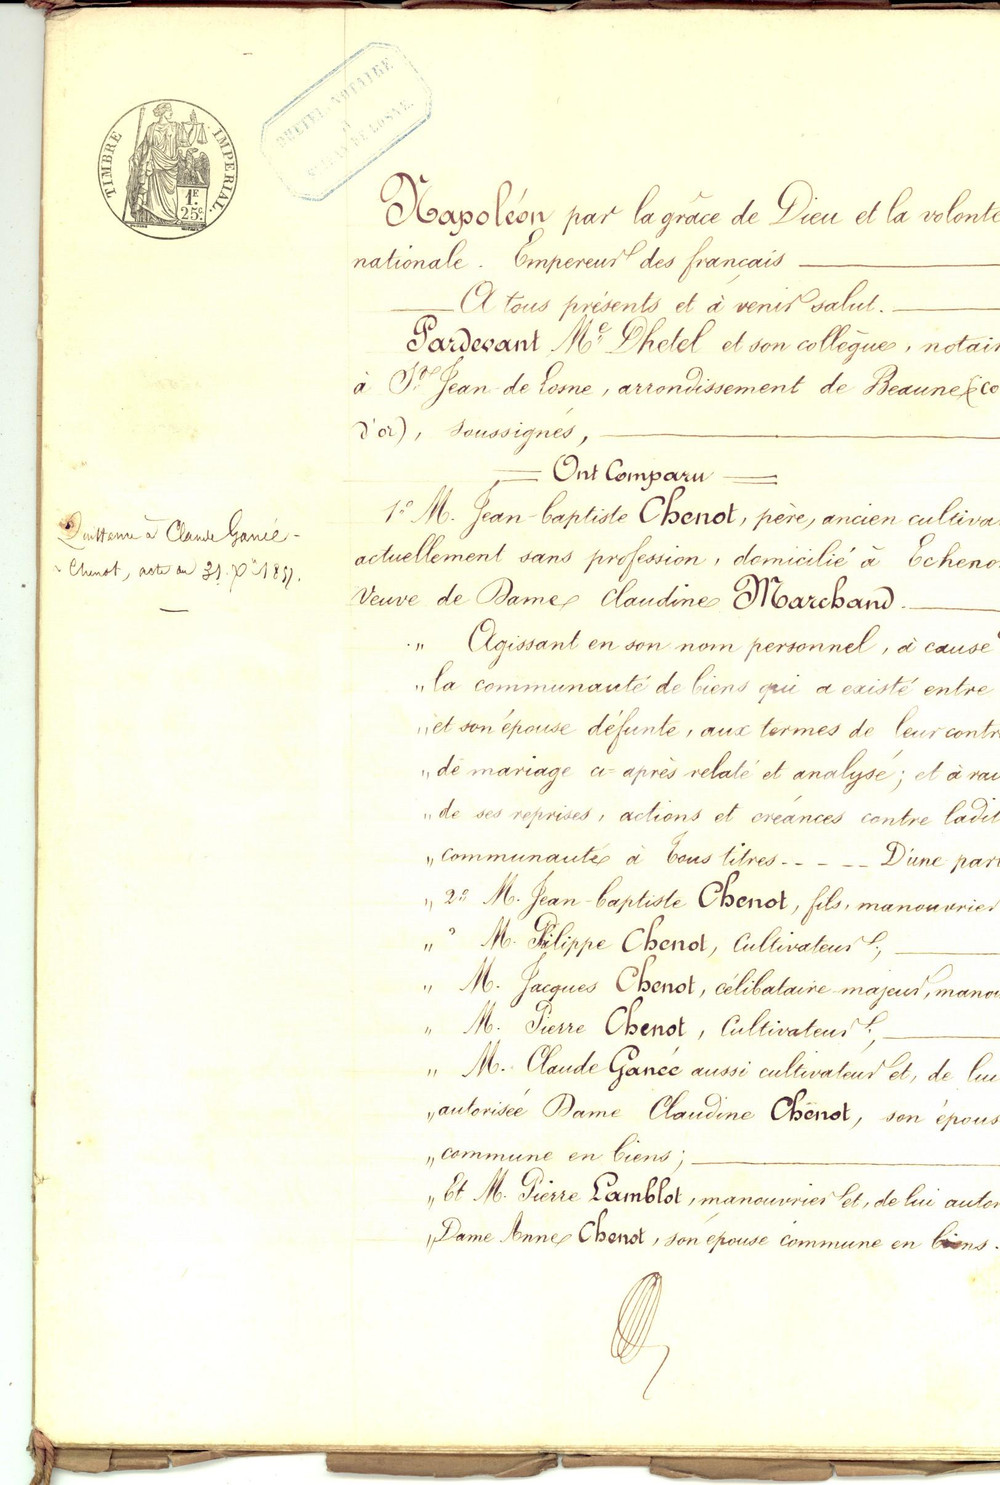 TIMBRE IMPERIAL.
1F.
25c
DHETEL NOTAIRE
A
ST JEAN DE LOSNE
Napoléon par la grâce de Dieu et la volonté
nationale. Empereur des français
A tous présents et à venir salut.
Pardevant Me Dhetel et son collègue, notair
à St Jean de Losne, arrondissement de Beaune (co
d'or), soussignés,
Ont Comparu
1o M. Jean-baptiste Chenot, père, ancien cultiva
actuellement sans profession, domicilié à Echeno
Veuve de Dame Claudine Marchand.
Quittance à Claude Ganée-
Chenot, acte du 31 Xbre
" Agissant en son nom personnel, à cause
" la communauté de biens qui a existé entre
" et son épouse défunte, aux termes de leur contr
" de mariage ci-après relaté et analysé; et à rai
" de ses reprises, actions et créances contre ladit
" communauté à tous titres - - - - D'une part
" 2o M. Jean-baptiste Chenot, fils, manouvrier
" M. Philippe Chenot, Cultivateur;
" M. Jacques Chenot, célibataire majeur, manou
" M. Pierre Chenot, Cultivateur;
" M. Claude Ganée aussi cultivateur et, de lui
" autorisée Dame Claudine Chenot, son épous
" commune en biens;
" Et M. Pierre Lamblot, manouvrier et, de lui autor
" Dame Anne Chenot, son épouse commune en biens.